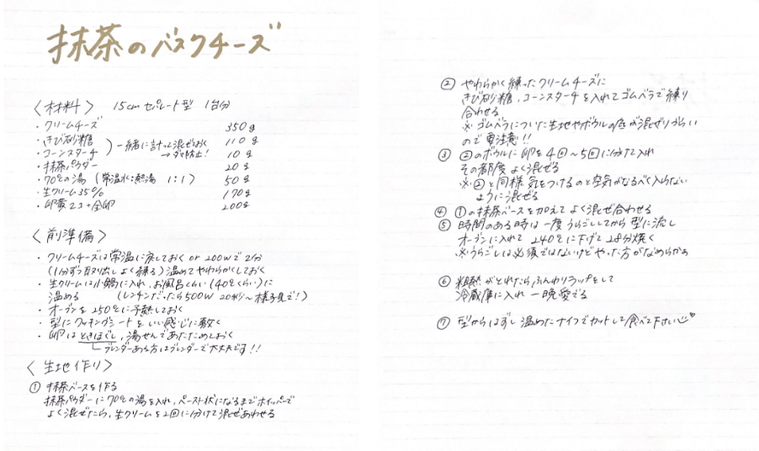 抹茶のバスクチーズ
〈材料〉 15cm セパレート型 1台分
・クリームチーズ 350g
・きび砂糖 110g
・コーンスターチ 10g
一緒に計って混ぜておく
→ダマ防止!
・抹茶パウダー 20g
・70℃の湯(常温水:熱湯 1:1) 50g
・生クリーム35% 170g
・卵黄2コ+全卵 200g
〈前準備〉
・クリームチーズは常温に戻しておく or 200Wで2分
(1分ずつ取り出しよく練る)温めてやわらかくしておく
・生クリームは小鍋に入れ、お風呂くらい(40℃くらい)に
温める (レンチンだったら500W 20秒〜様子見で!)
・オーブンを250℃に予熱しておく
・型にクッキングシートをいい感じに敷く
・卵はときほぐし、湯せんであたためておく
ブレンダーある方はブレンダーで大丈夫です!!
〈生地作り〉
① 抹茶ベースを作る
抹茶パウダーに70℃の湯を入れ、ペースト状になるまでホイッパーで
よく混ぜたら、生クリームを2回に分けて混ぜあわせる
② やわらかく練ったクリームチーズに
きび砂糖、コーンスターチを入れてゴムベラで練り
合わせる
※ゴムベラについた生地やボウルの底が混ざりづらい
ので要注意!!
③ ②のボウルに卵を4回〜5回に分けて入れ
その都度よく混ぜる
※②と同様気をつけるのと空気がなるべく入らない
ように混ぜる
④ ①の抹茶ベースを加えてよく混ぜ合わせる
⑤ 時間のある時は一度うらごししてから型に流し
オーブンに入れて240℃に下げて28分焼く
※うらごしは必須ではないけどやった方がなめらかぁ
⑥ 粗熱がとれたらふんわりラップをして
冷蔵庫に入れ一晩愛でる
⑦ 型からはずし温めたナイフでカットして食べて下さい♡